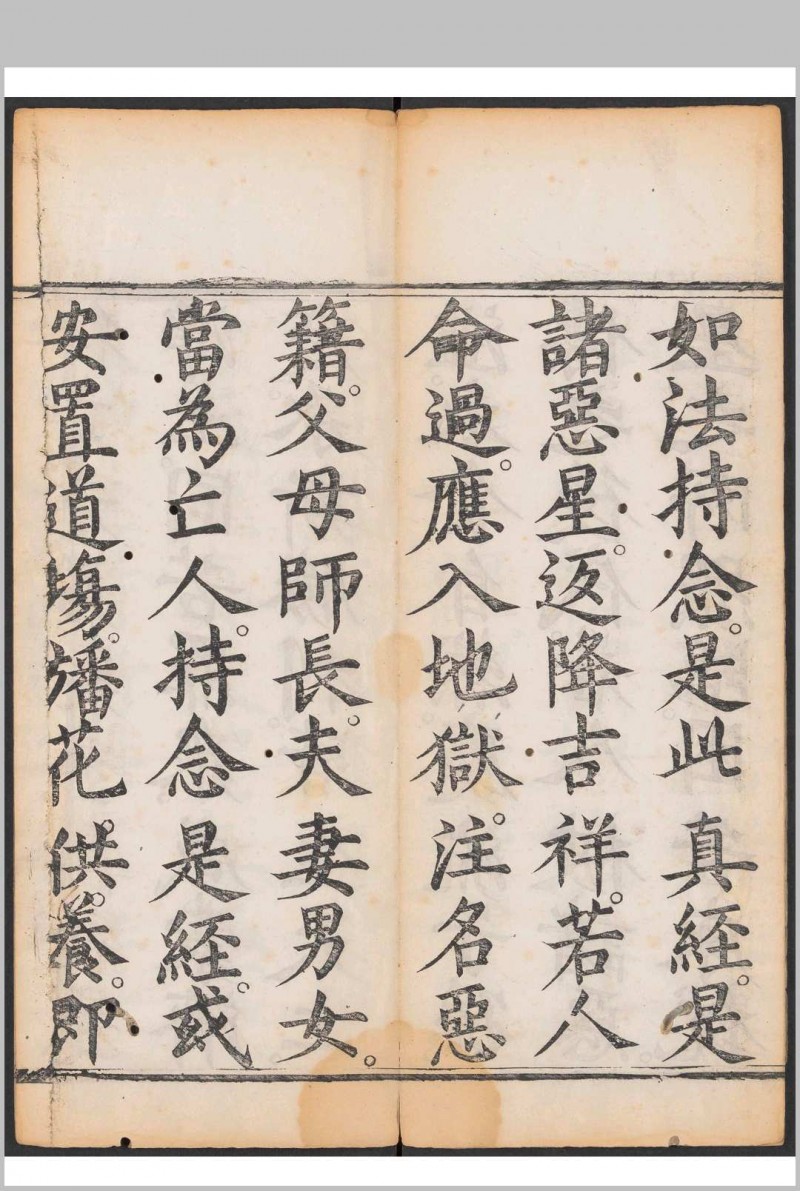 如法持念。是此真經。是
諸惡星。返降吉祥。若人
命過。應入地獄。注名惡
籍。父母師長。夫妻男女。
當為亡人。持念是経。或
安置道塲。旛花供養。即